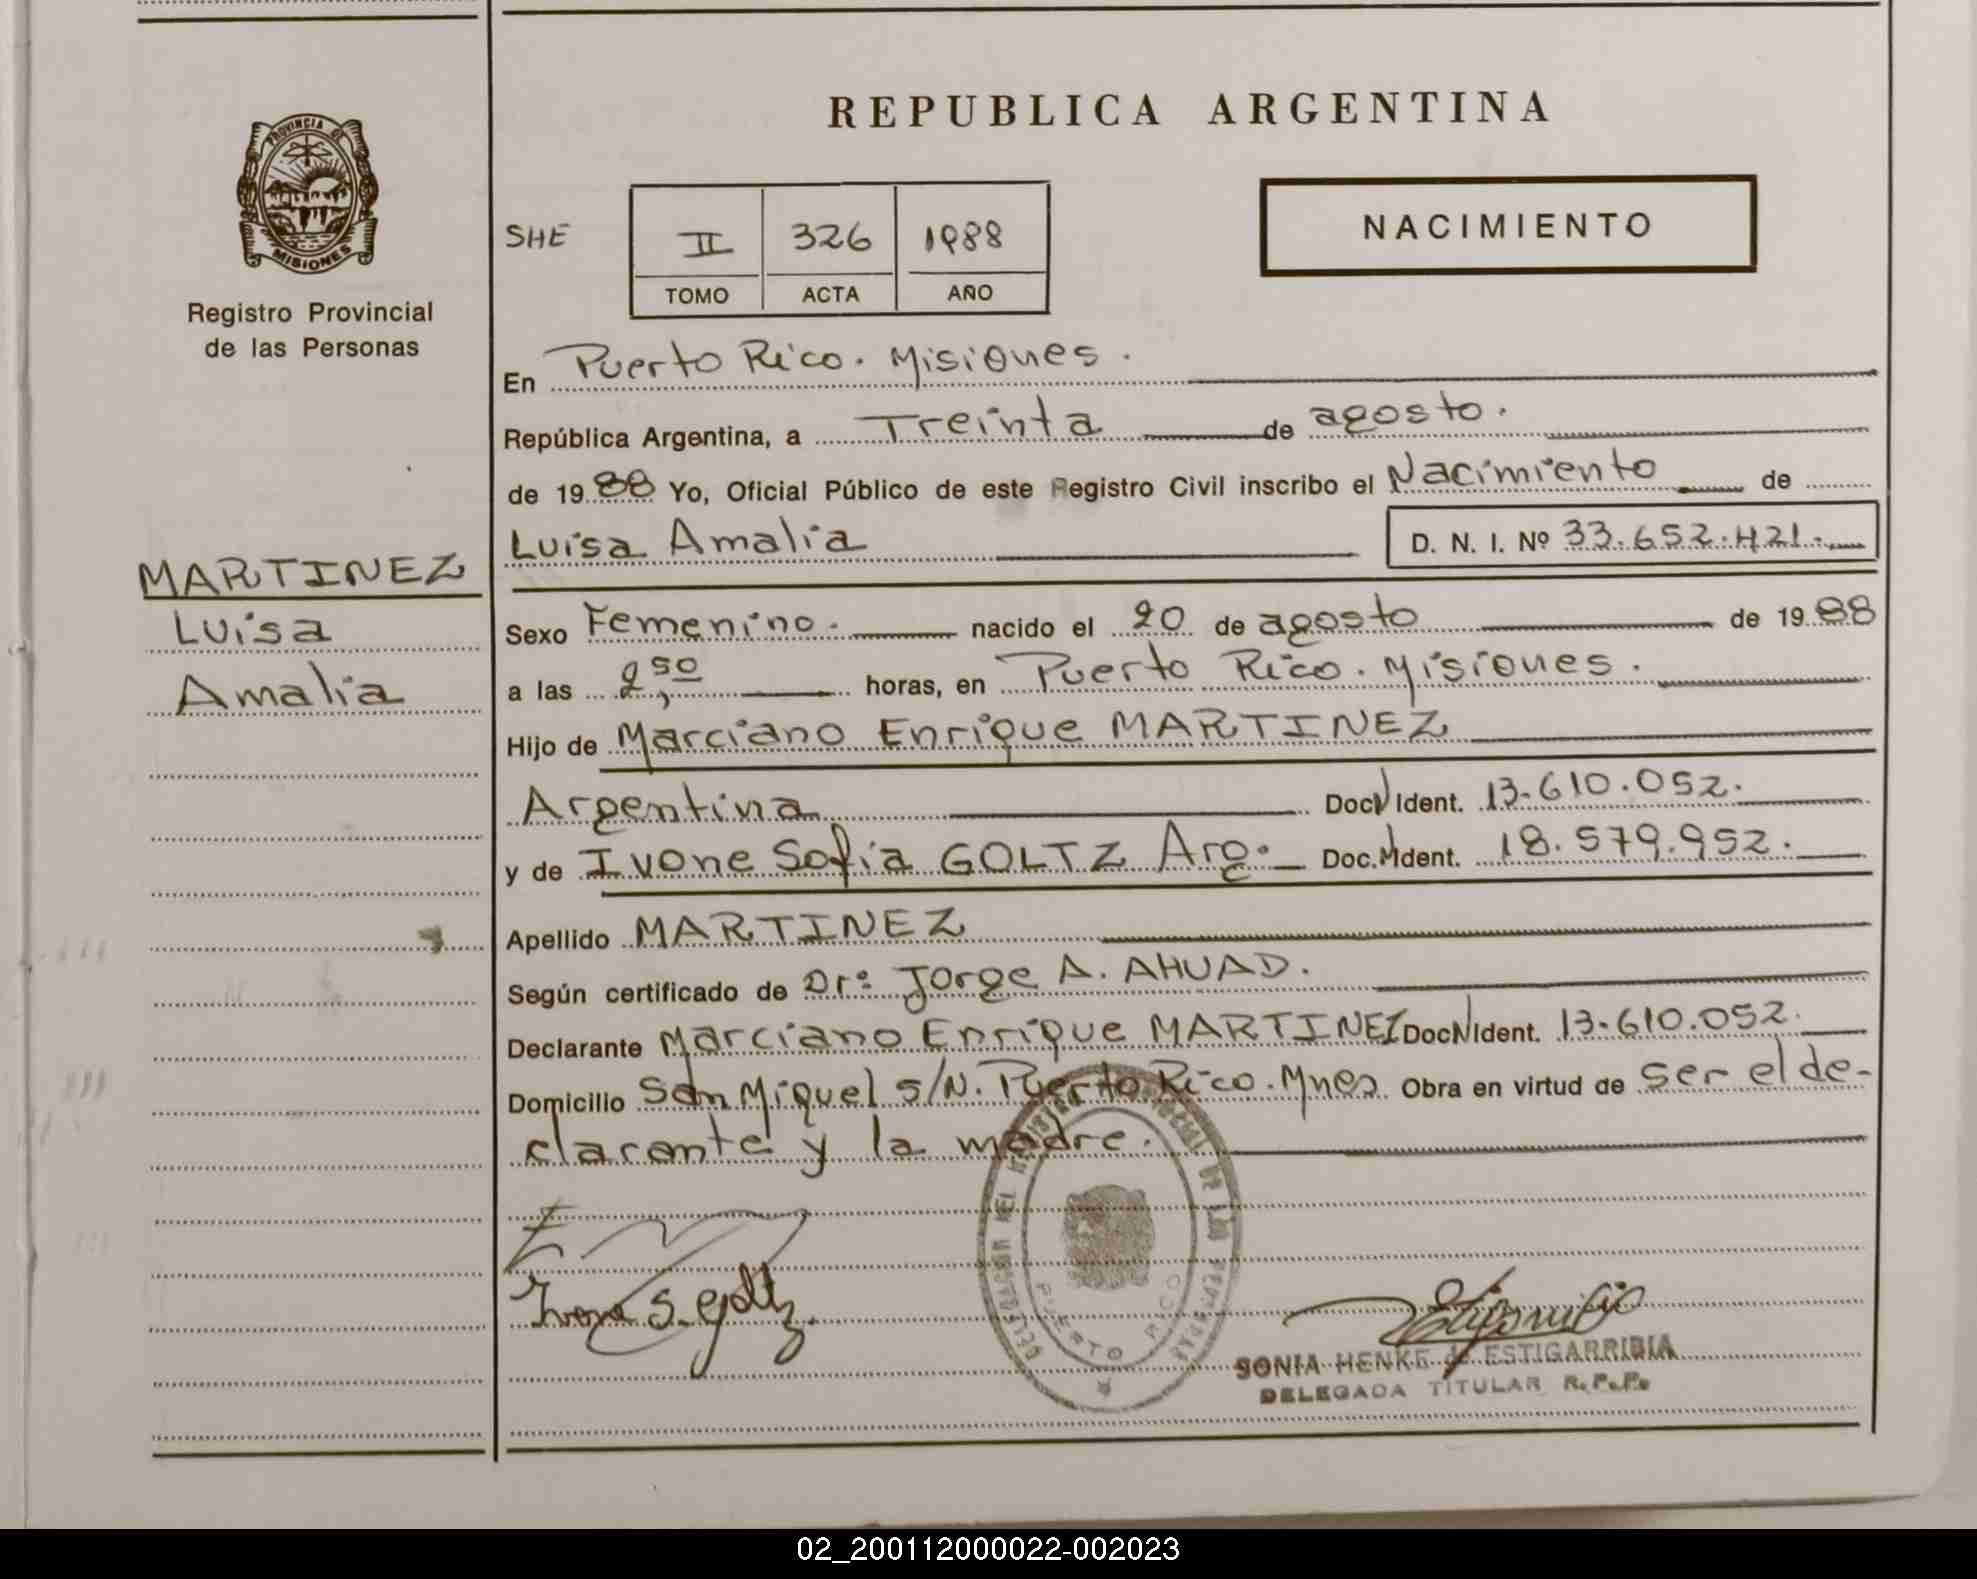 PROVINCIA DE
MISIONES
Registro Provincial
de las Personas
MARTINEZ
Luisa
Amalia
REPUBLICA ARGENTINA
SHE
II 326 1988
TOMO ACTA AÑO
NACIMIENTO
En Puerto Rico. Misiones.
República Argentina, a Treinta de agosto.
de 1988 Yo, Oficial Público de este Registro Civil inscribo el Nacimiento de
Luisa Amalia D. N. I. Nº 33.652.421.-
Sexo Femenino. nacido el 20 de agosto de 1988
a las 2,50 horas, en Puerto Rico. Misiones.
Hijo de Marciano Enrique MARTINEZ
Argentina Doc. N Ident. 13.610.052.
y de Ivone Sofia GOLTZ Arg. Doc. N Ident. 18.579.952.
Apellido MARTINEZ
Según certificado de Dr. Jorge A. AHUAD.
Declarante Marciano Enrique MARTINEZ Doc N Ident. 13.610.052.
Domicilio San Miguel s/N. Puerto Rico. Mnes. Obra en virtud de ser el de-
clarante y la madre.
Ivone S. Goltz.
DELEGACION DEL REGISTRO PROVINCIAL DE LAS PERSONAS
PUERTO RICO
SONIA HENKE de ESTIGARRIBIA
DELEGADA TITULAR R.P.P.
02_200112000022-002023